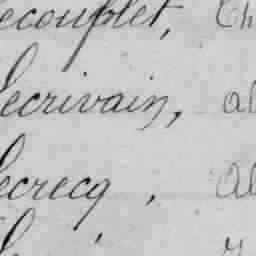 Lecouplet, Ch
Lecrivain, Al
Lecrecq, Al